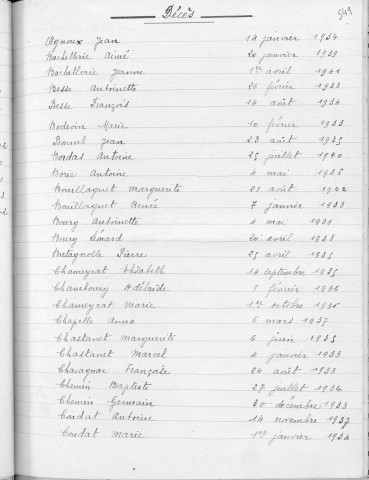 Décès
549
Agnoux Jean 12 janvier 1934
Bachellerie Aimé 20 janvier 1933
Bachellerie Jeanne 1er avril 1941
Besse Antoinette 26 février 1933
Besse François 14 août 1934
Bodevin Marie 10 février 1933
Bonnel Jean 23 août 1935
Bordas Antoine 25 juillet 1940
Borie Antoine 4 mai 1936
Bouillaguet Marguerite 21 août 1942
Bouillaguet Renée 7 janvier 1933
Bourg Antoinette 4 mai 1939
Bourg Léonard 20 avril 1938
Bretagnolle Pierre 25 avril 1935
Chameyrat Elisabeth 14 septembre 1935
Chambourg Adélaïde 3 février 1936
Chameyrat Marie 1er octobre 1936
Chapelle Anna 6 mars 1937
Chastanet Marguerite 6 juin 1935
Chastanet Marcel 4 janvier 1933
Chavagnac Française 24 août 1933
Chemin Baptiste 27 juillet 1936
Chemin Germain 30 décembre 1933
Condat Antoine 14 novembre 1937
Condat Marie 1er janvier 1934